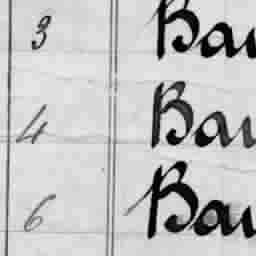 3 Bau
4 Bau
6 Bau